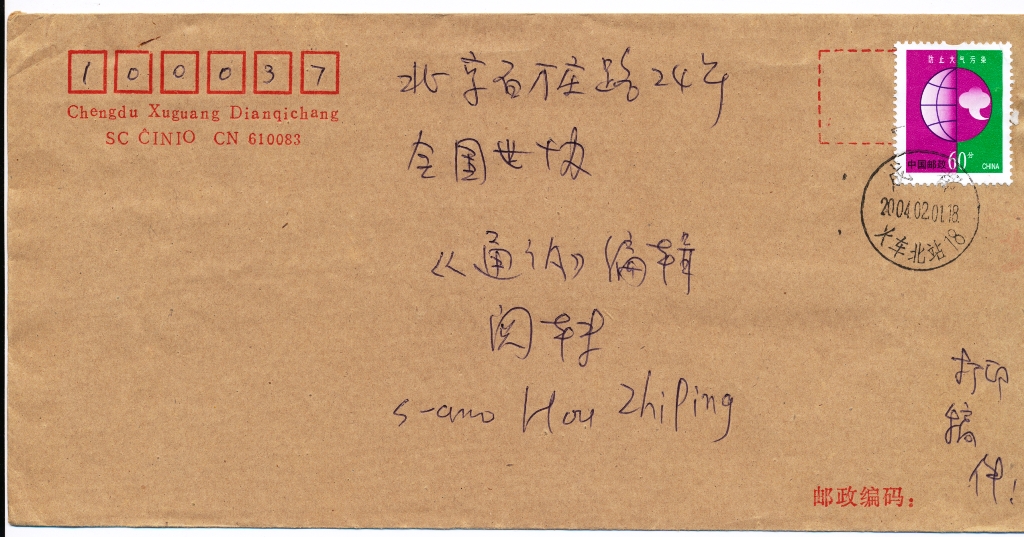 1 0 0 0 3 7
Chengdu Xuguang Dianqichang
SC ĈINIO CN 610083
北京百万庄路24号
全国世协
《通讯》编辑
阅转
s-ano Hou Zhiping
防止大气污染
中国邮政 60分 CHINA
成都
2004.02.01.18
火车北站18
打印
稿
件!
邮政编码: